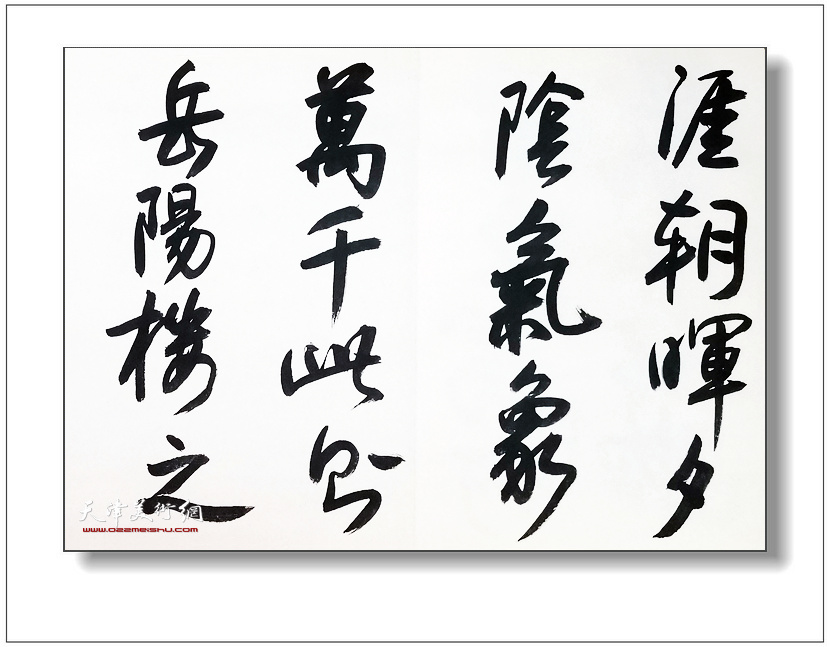 涯朝暉夕
陰氣象
萬千此则
岳陽樓之
天津美術網
www.022meishu.com